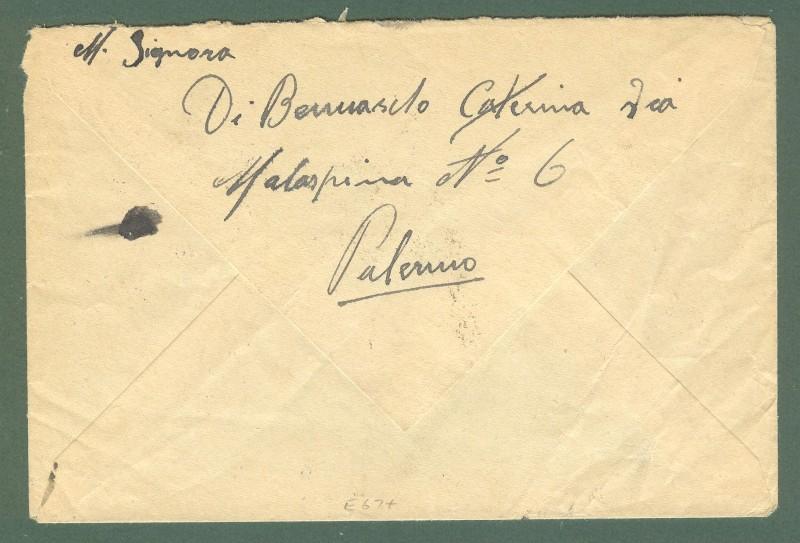 M. Signora
Di Bernardo Caterina Via
Malaspina Nº 6
Palermo
E67+